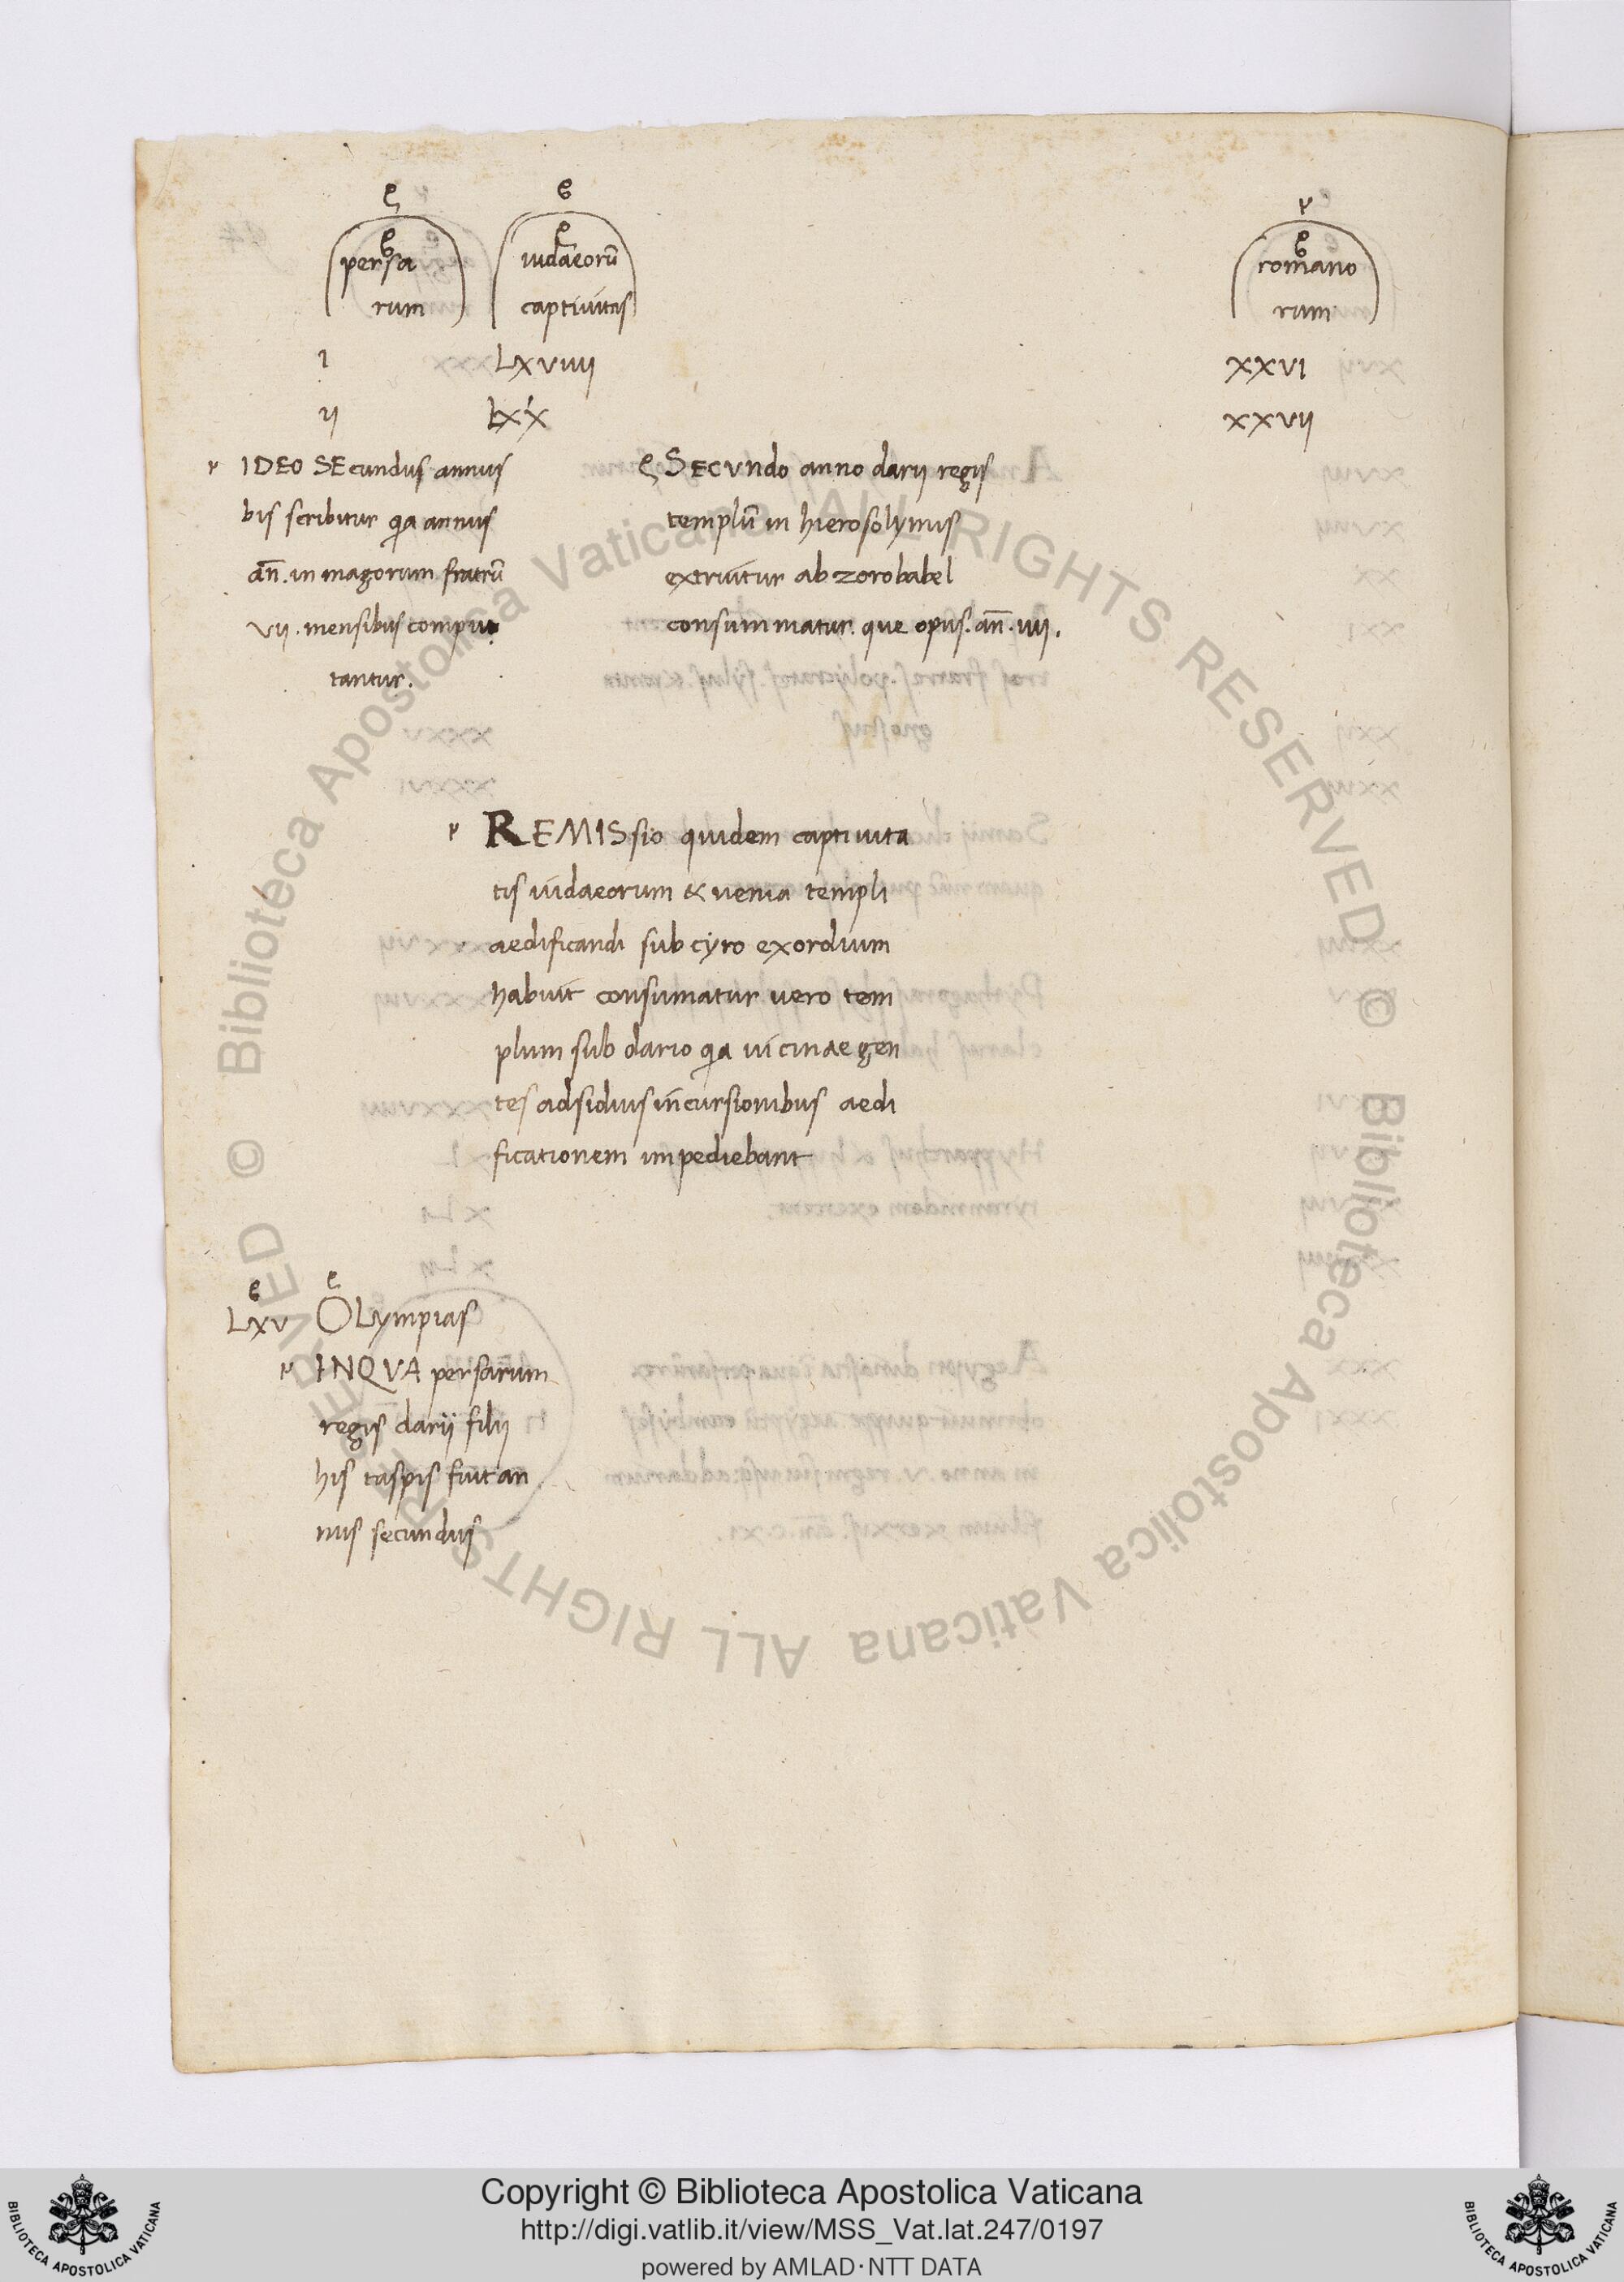 persa
rum
iudaeorũ
captiuitas
romano
rum
I
LXVIIII
XXVI
II
LXX
XXVII
IDEO SEcundus annus
bis scribitur qia annus
añ. in magorum fratrũ
VII. mensibus compu
tantur.
SECVndo anno darii regis
templũ in hierosolymis
extruitur ab zorobabel
consummatur. que opus. añ. IIII.
REMISsio quidem captiuita
tis iudaeorum & uenia templi
aedificandi sub cyro exordium
habuit consumatur uero tem
plum sub dario qia uicinae gen
tes adsiduis incursionibus aedi
ficationem impediebant
LXV OLympias
INQVA persarum
regis darii filii
his taspis fuit an
nus secundus
© Biblioteca Apostolica Vaticana ALL RIGHTS RESERVED
© Biblioteca Apostolica Vaticana ALL RIGHTS RESERVED
Copyright © Biblioteca Apostolica Vaticana
http://digi.vatlib.it/view/MSS_Vat.lat.247/0197
powered by AMLAD·NTT DATA
BIBLIOTECA APOSTOLICA VATICANA
BIBLIOTECA APOSTOLICA VATICANA